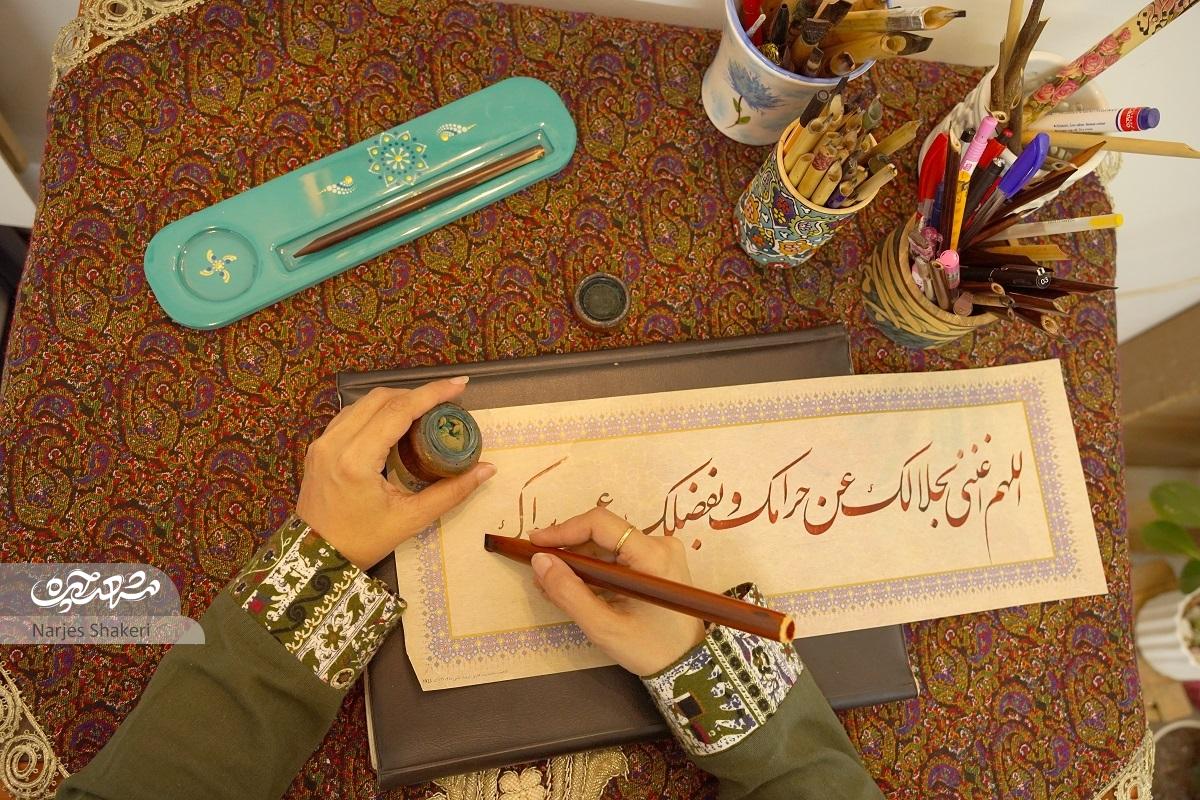 اللهم اغننی بحلالک عن حرامک و بفضلک عمن سواک
Narjes Shakeri